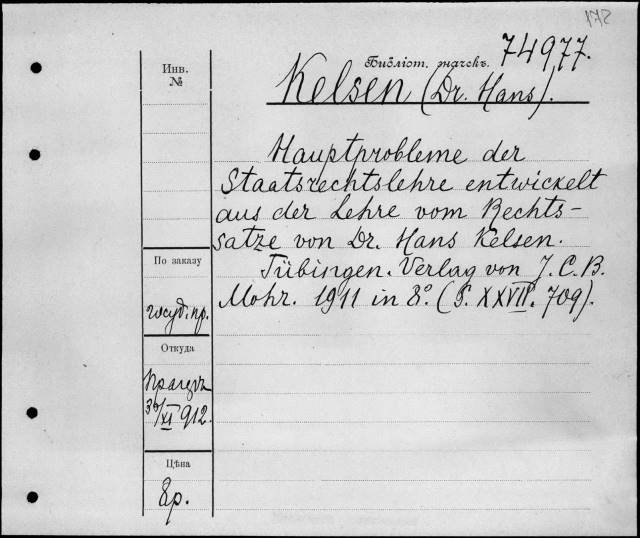 172
Библіот. значекъ. 74977.
Kelsen (Dr. Hans).
Hauptprobleme der
Staatsrechtslehre entwickelt
aus der Lehre vom Rechts-
satze von Dr. Hans Kelsen.
Tübingen. Verlag von J. C. B.
Mohr. 1911 in 8°. (S. XXVII. 709).
Инв.
№
По заказу
госуд. пр.
Откуда
30/XI 912.
Цѣна
8р.